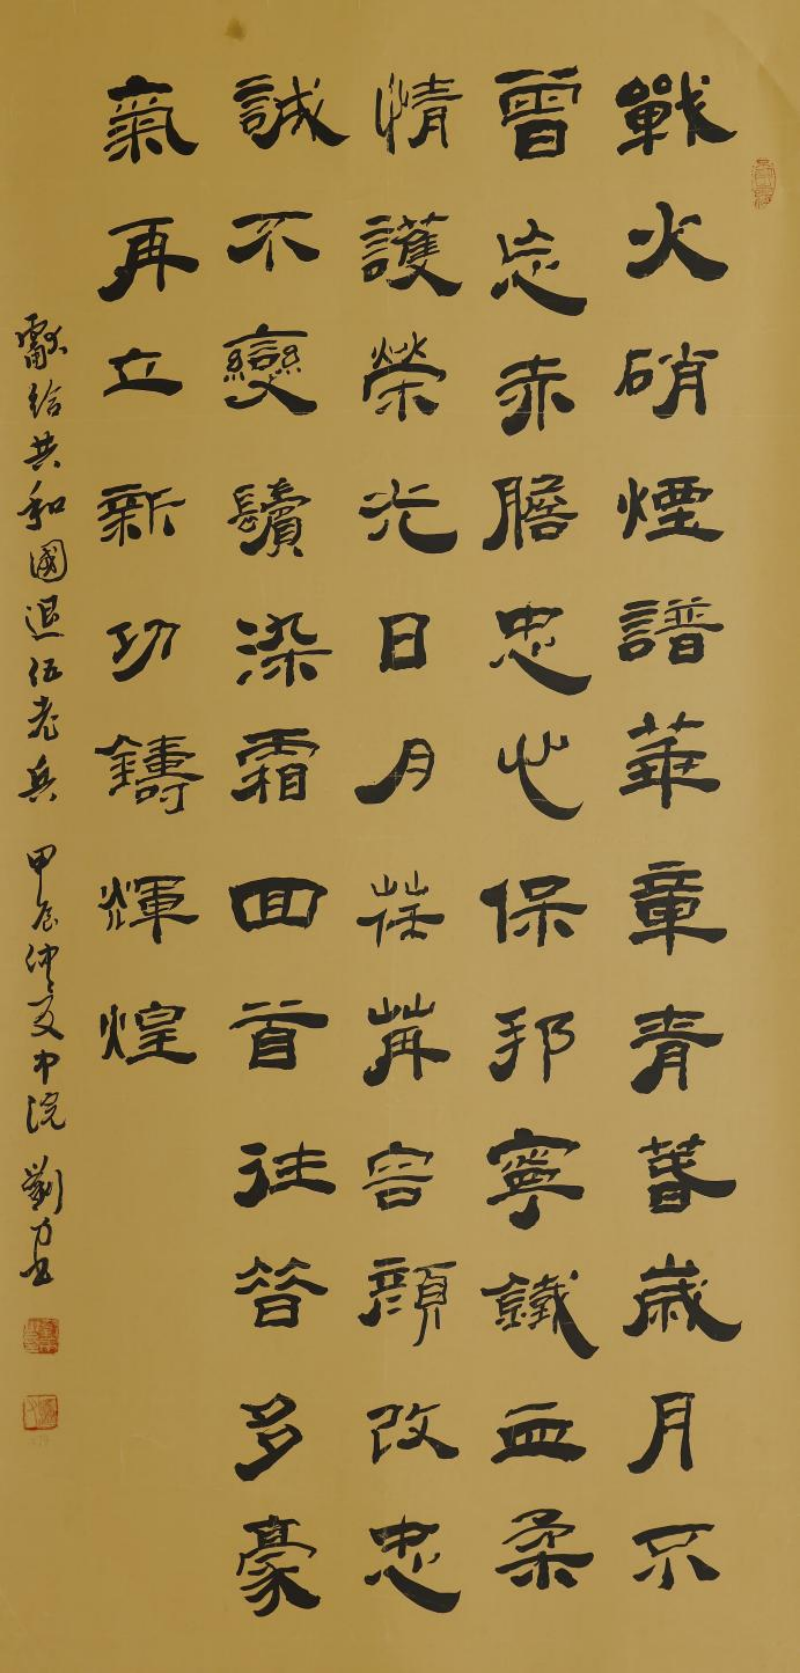 戰火硝煙譜華章青春歲月不
曾忘赤膽忠心保邦寧鐵血柔
情護榮光日月荏苒容顏改忠
誠不變鬢染霜回首往昔多豪
氣再立新功鑄輝煌
獻給共和國退伍老兵 甲辰仲夏中浣 劉力書